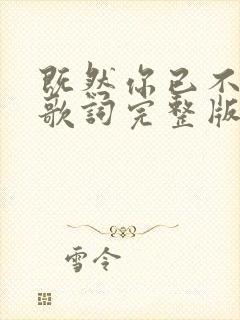 既然你已不
歌詞完整版
雪令